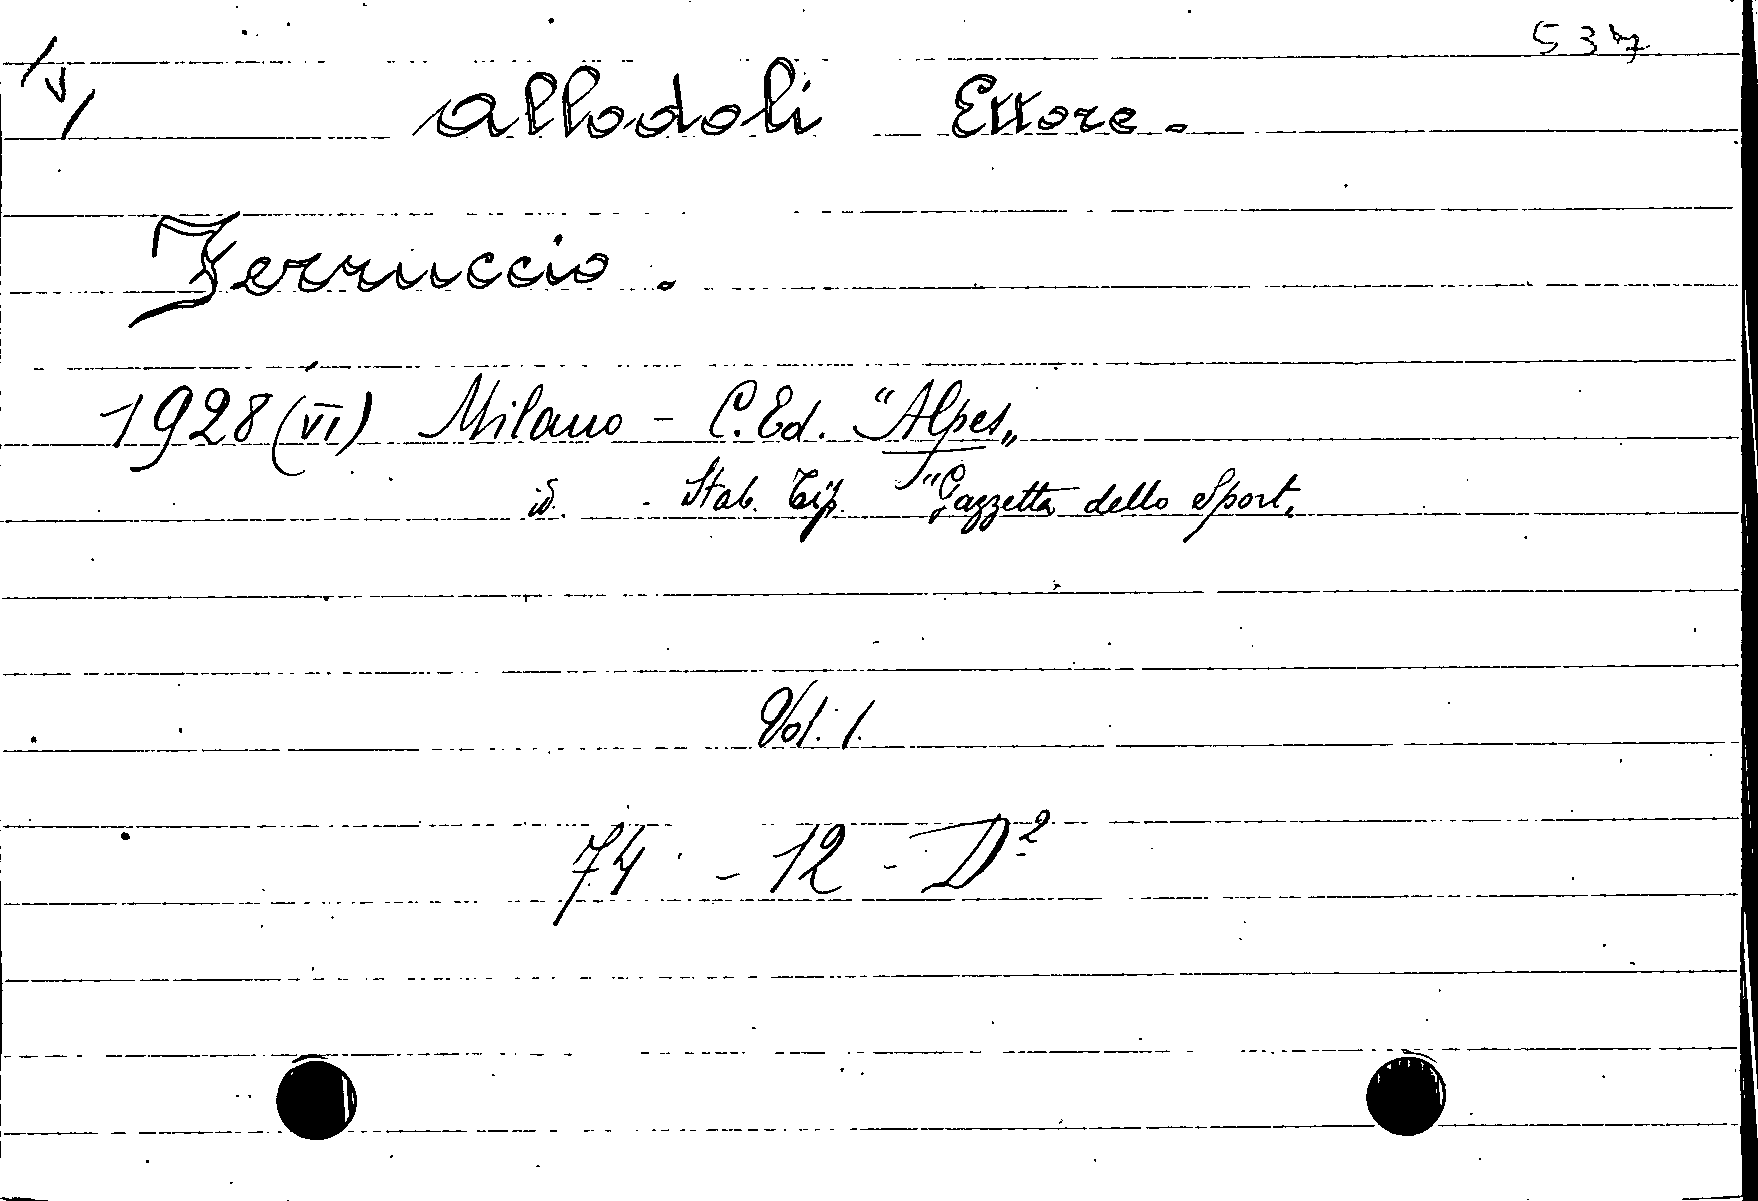 537
V
Allodoli Ettore.
Ferruccio.
1928 (VI) Milano - C. Ed. "Alpes„
id. - Stab. Tip. "Gazzetta dello Sport„
Vol. 1.
74 - 12 - D²